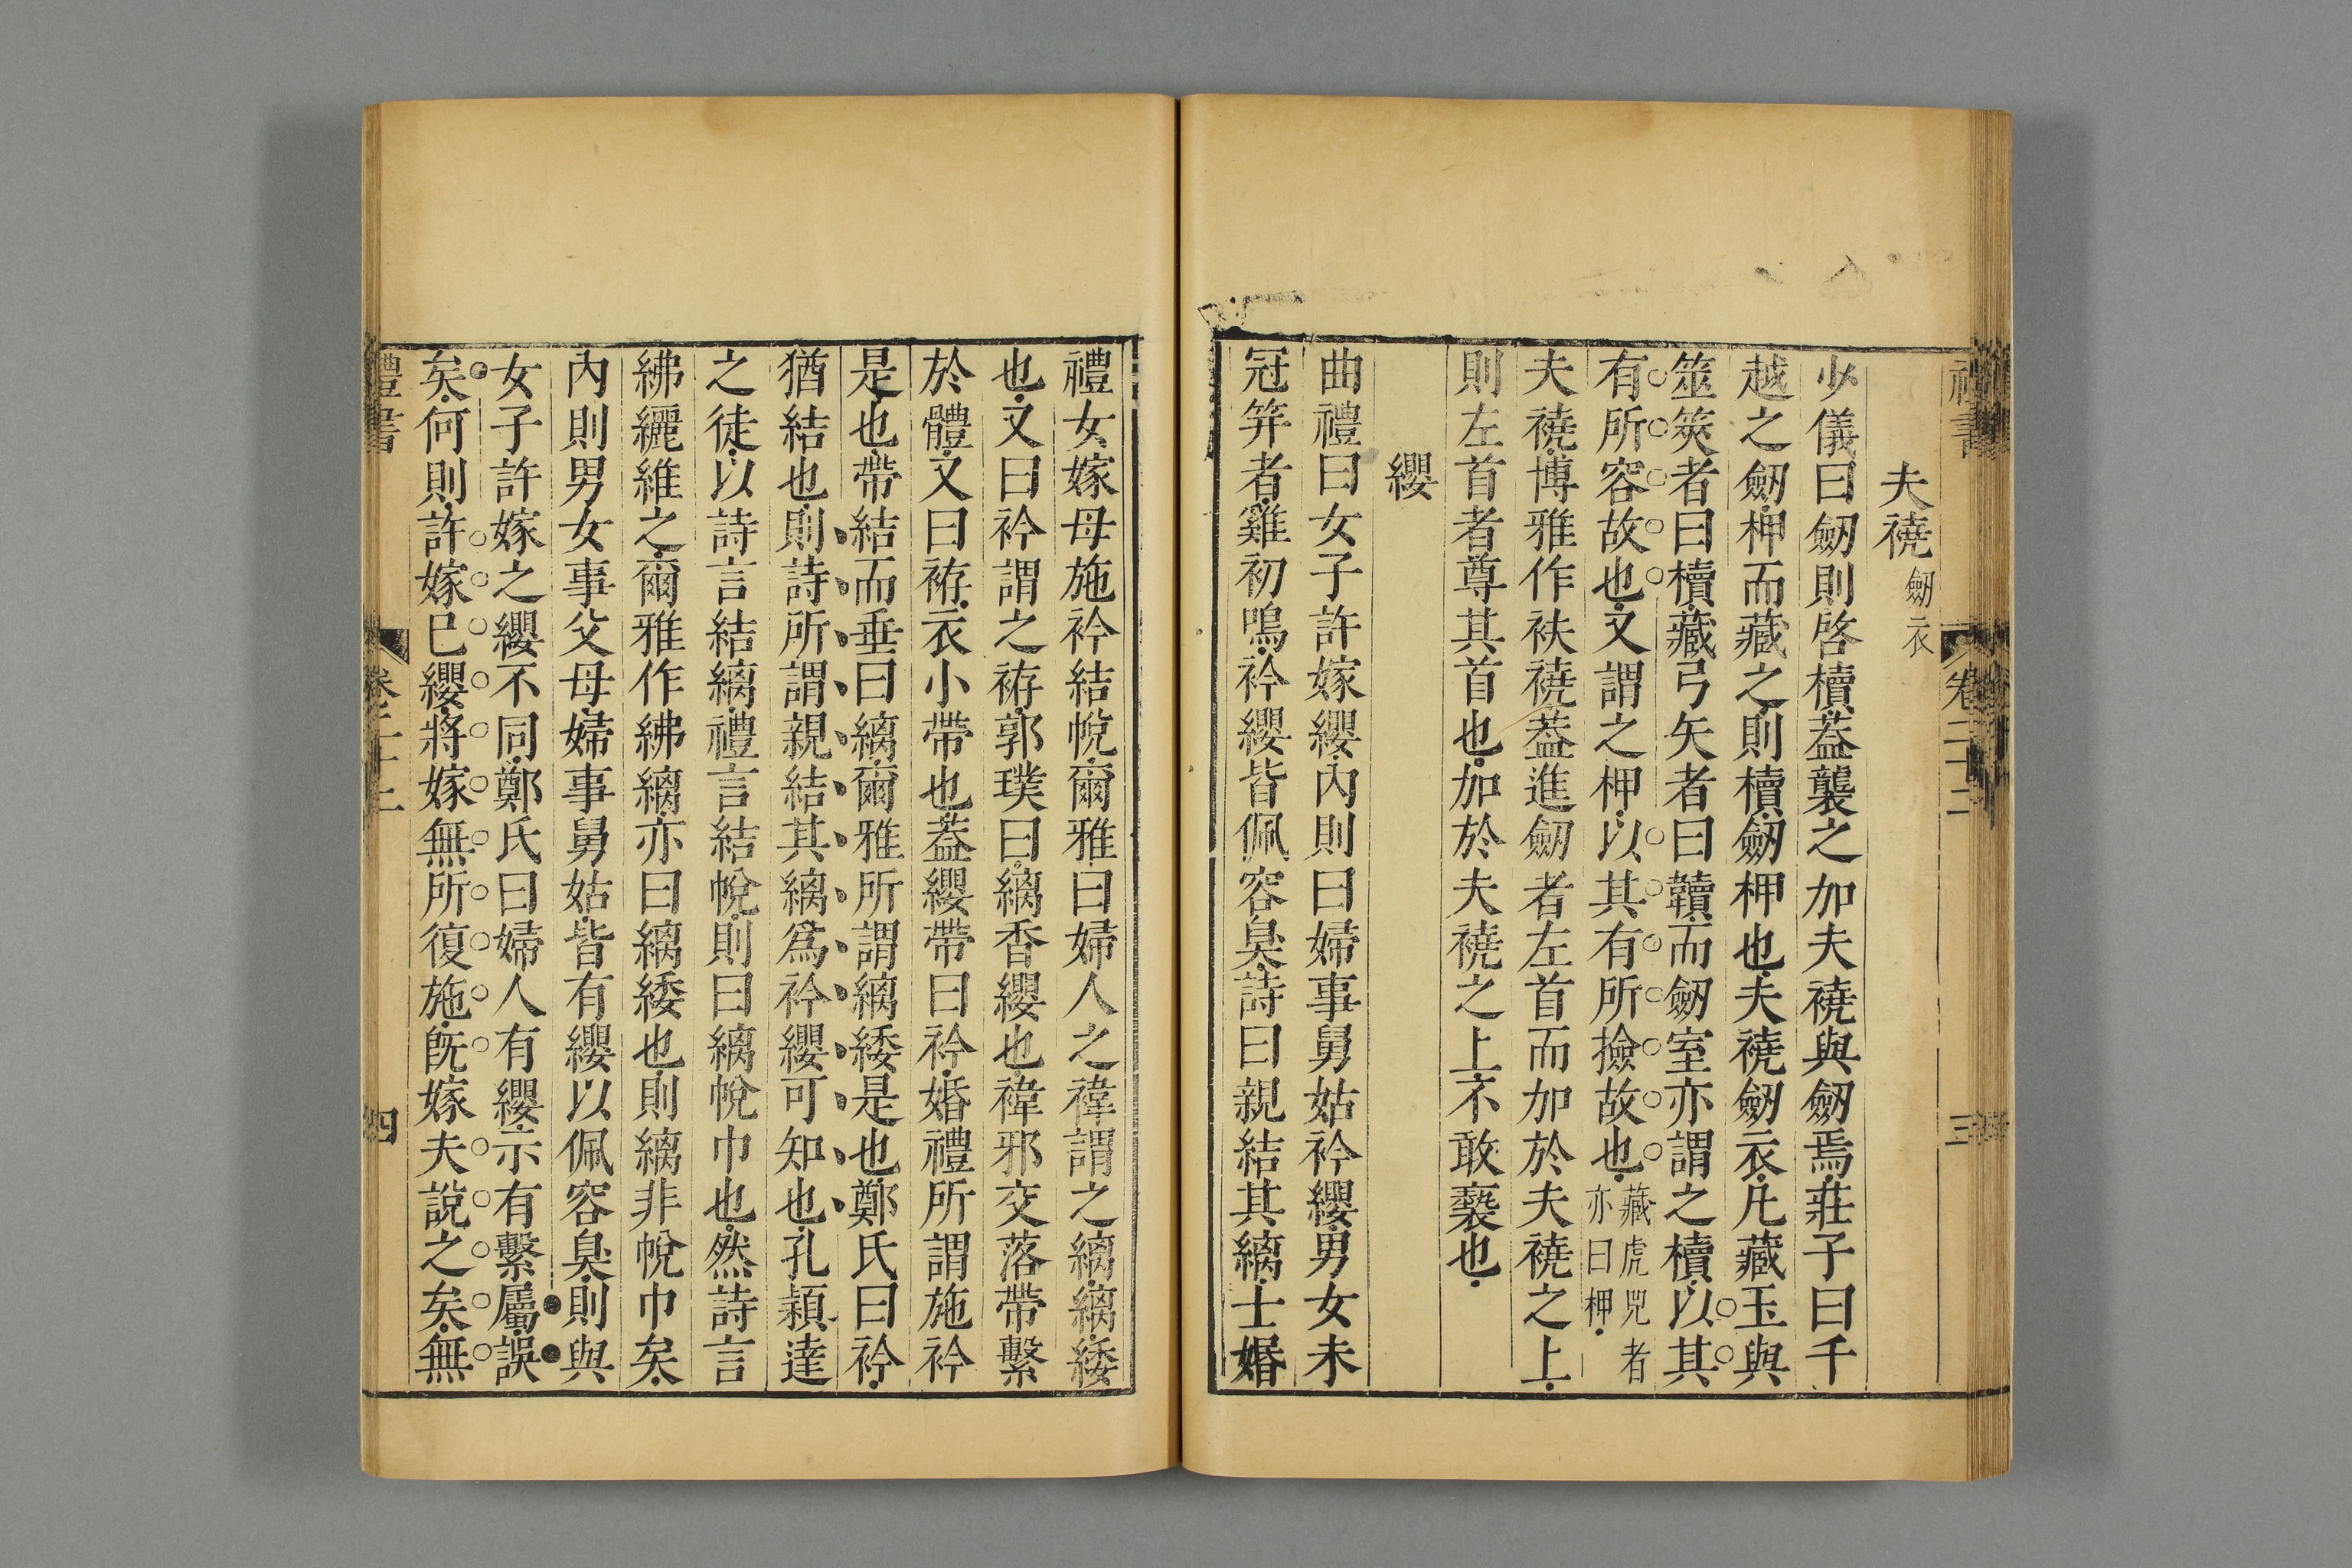 禮書 卷二十二 三
夫襓劒衣
少儀曰劒則啓櫝蓋襲之加夫襓與劒焉莊子曰干
越之劒柙而藏之則櫝劒柙也夫襓劒衣凡藏玉與
筮筴者曰櫝藏弓矢者曰韥而劒室亦謂之櫝以其
有所容故也又謂之柙以其有所撿故也藏虎兕者亦曰柙
夫襓博雅作袂襓蓋進劒者左首而加於夫襓之上
則左首者尊其首也加於夫襓之上不敢褻也
纓
曲禮曰女子許嫁纓內則曰婦事舅姑衿纓男女未
冠笄者雞初鳴衿纓皆佩容臭詩曰親結其縭士婚
禮女嫁母施衿結帨爾雅曰婦人之褘謂之縭縭緌
也又曰衿謂之袸郭璞曰縭香纓也褘邪交落帶繫
於體又曰袸衣小帶也蓋纓帶曰衿婚禮所謂施衿
是也帶結而垂曰縭爾雅所謂縭緌是也鄭氏曰衿
猶結也則詩所謂親結其縭爲衿纓可知也孔穎達
之徒以詩言結縭禮言結帨則曰縭帨巾也然詩言
紼纚維之爾雅作紼縭亦曰縭緌也則縭非帨巾矣
內則男女事父母婦事舅姑皆有纓以佩容臭則與
女子許嫁之纓不同鄭氏曰婦人有纓示有繫屬誤
矣何則許嫁已纓將嫁無所復施旣嫁夫說之矣無
禮書 卷二十二 四